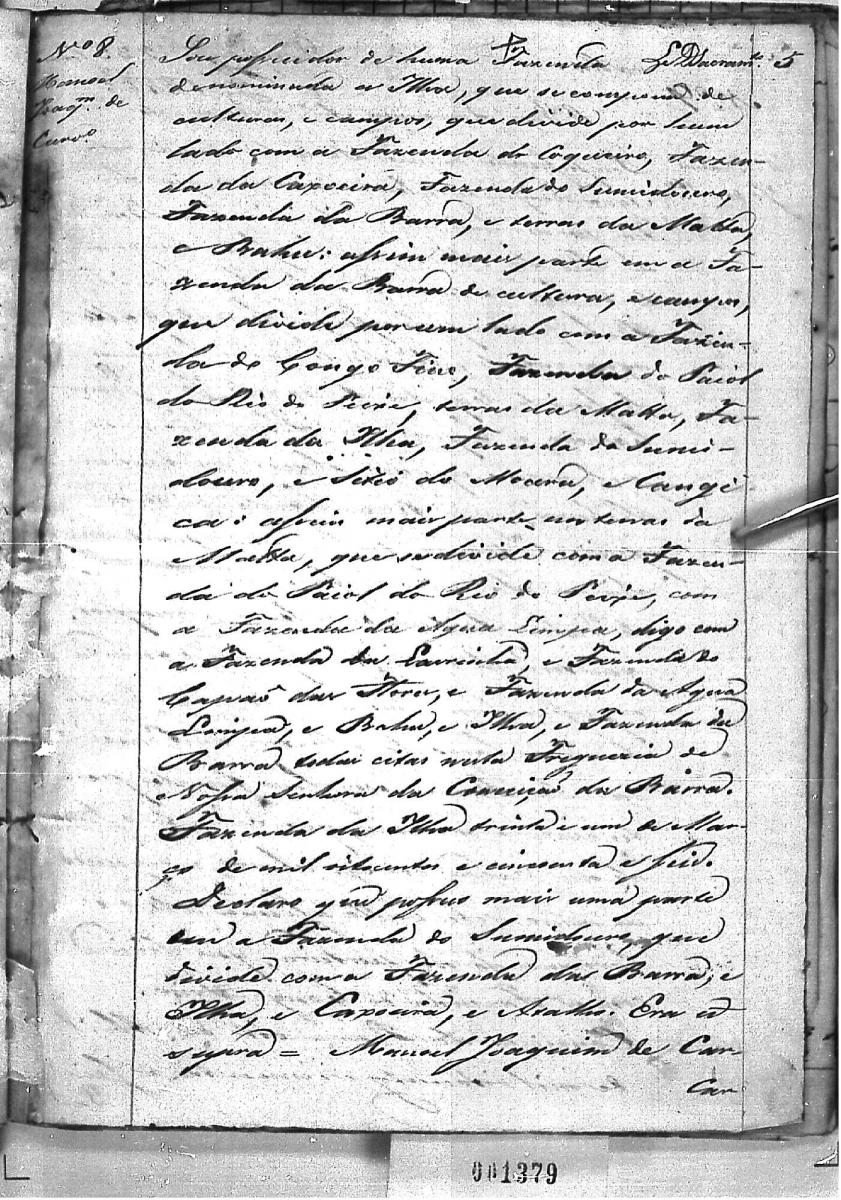 Nº 8.
Manoel
Joaqm. de
Carvº
5
Sou possuidor de huma Fazenda
denominada a Ilha, que se compoem de
culturas, e campos, que divide por hum
lado com a Fazenda do Coqueiro, Fazen-
da da Capoeira, Fazenda do Sumidouro,
Fazenda da Barra, e terras da Matta,
e Bahu: assim mais parte em a Fa-
zenda da Barra de cultura, e campos,
que divide por um lado com a Fazen-
da do Congo Fino, Fazenda do Paiol
do Rio do Peixe, terras da Matta, Fa-
zenda da Ilha, Fazenda do Sumi-
douro, e Sitio do, e Cangi-
ca: assim mais parte em terras da
Matta, que se divide com a Fazen-
da do Paiol do Rio do Peixe, com
a Fazenda da Agua Limpa, digo com
a Fazenda da Lavrinha, e Fazenda do
Capaõ das Flores, e Fazenda da Agua
Limpa, e Bahu, e Ilha, e Fazenda da
Barra todas citas nesta Freguezia de
Nossa Senhora da Conceição da Barra.
Fazenda da Ilha trinta e um de Mar-
ço de mil oitocentos e cincoenta e seis.
Declaro que possuo mais uma parte
em a Fazenda do Sumidouro, que
divide com a Fazenda da Barra, e
Ilha, e Capoeira, e Atalho. Era ut
supra = Manoel Joaquim de Car-
Car
001379